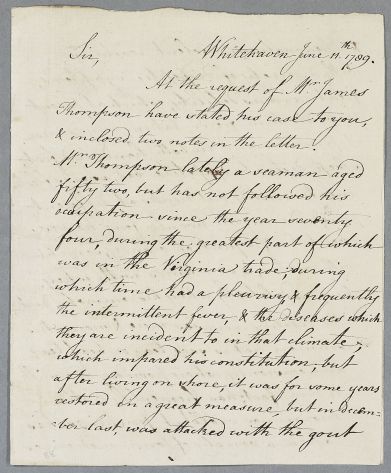 Sir, Whitehaven June 11th. 1789.
At the request of Mr. James
Thompson have stated his case to you,
& inclosed two notes in the letter.
Mr. Thompson lately a seaman aged
fifty two, but has not followed his
ocupation since the year seventy
four, during the greatest part of which
was in the Virginia trade, during
which time had a pleurisy, & frequently
the intermittent fever, & the diseases which
they are incident to in that climate,
which impared his constitution, but
after living on shore, it was for some years
restored in a great measure, but in decem-
ber last, was attacked with the gout